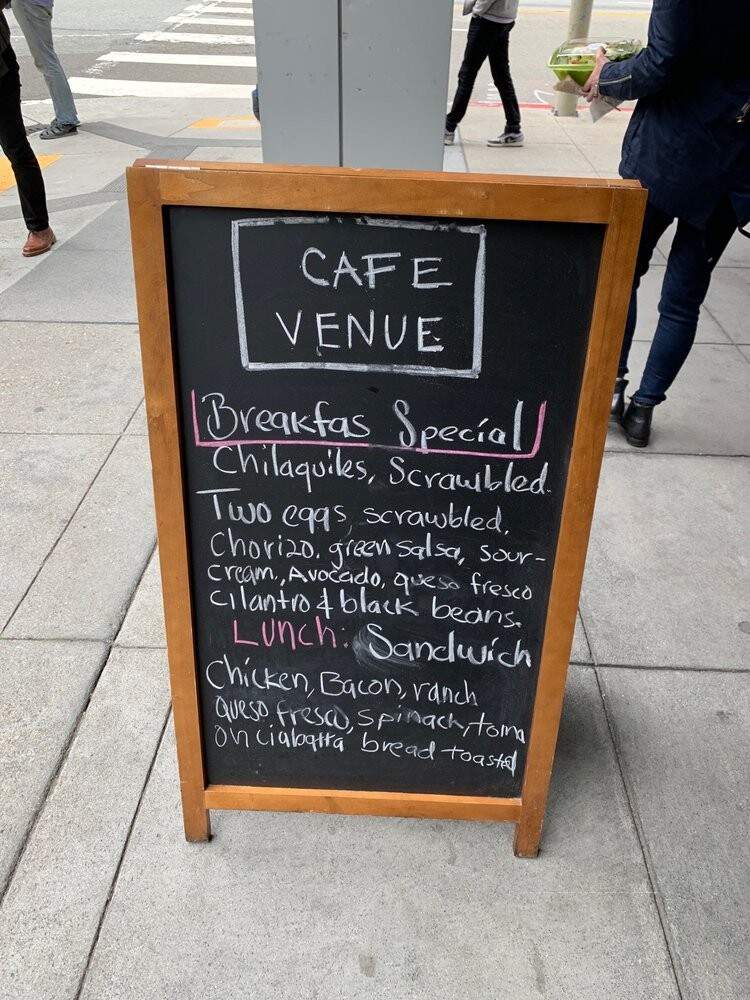 CAFE
VENUE
Breakfas Special
Chilaquiles, Scrawbled.
Two eggs, scrawbled,
Chorizo, green salsa, sour-
cream, Avocado, queso fresco
cilantro & black beans.
Lunch: Sandwich
Chicken, Bacon, ranch
Queso fresco, spinach, toma
on ciabatta bread toasted